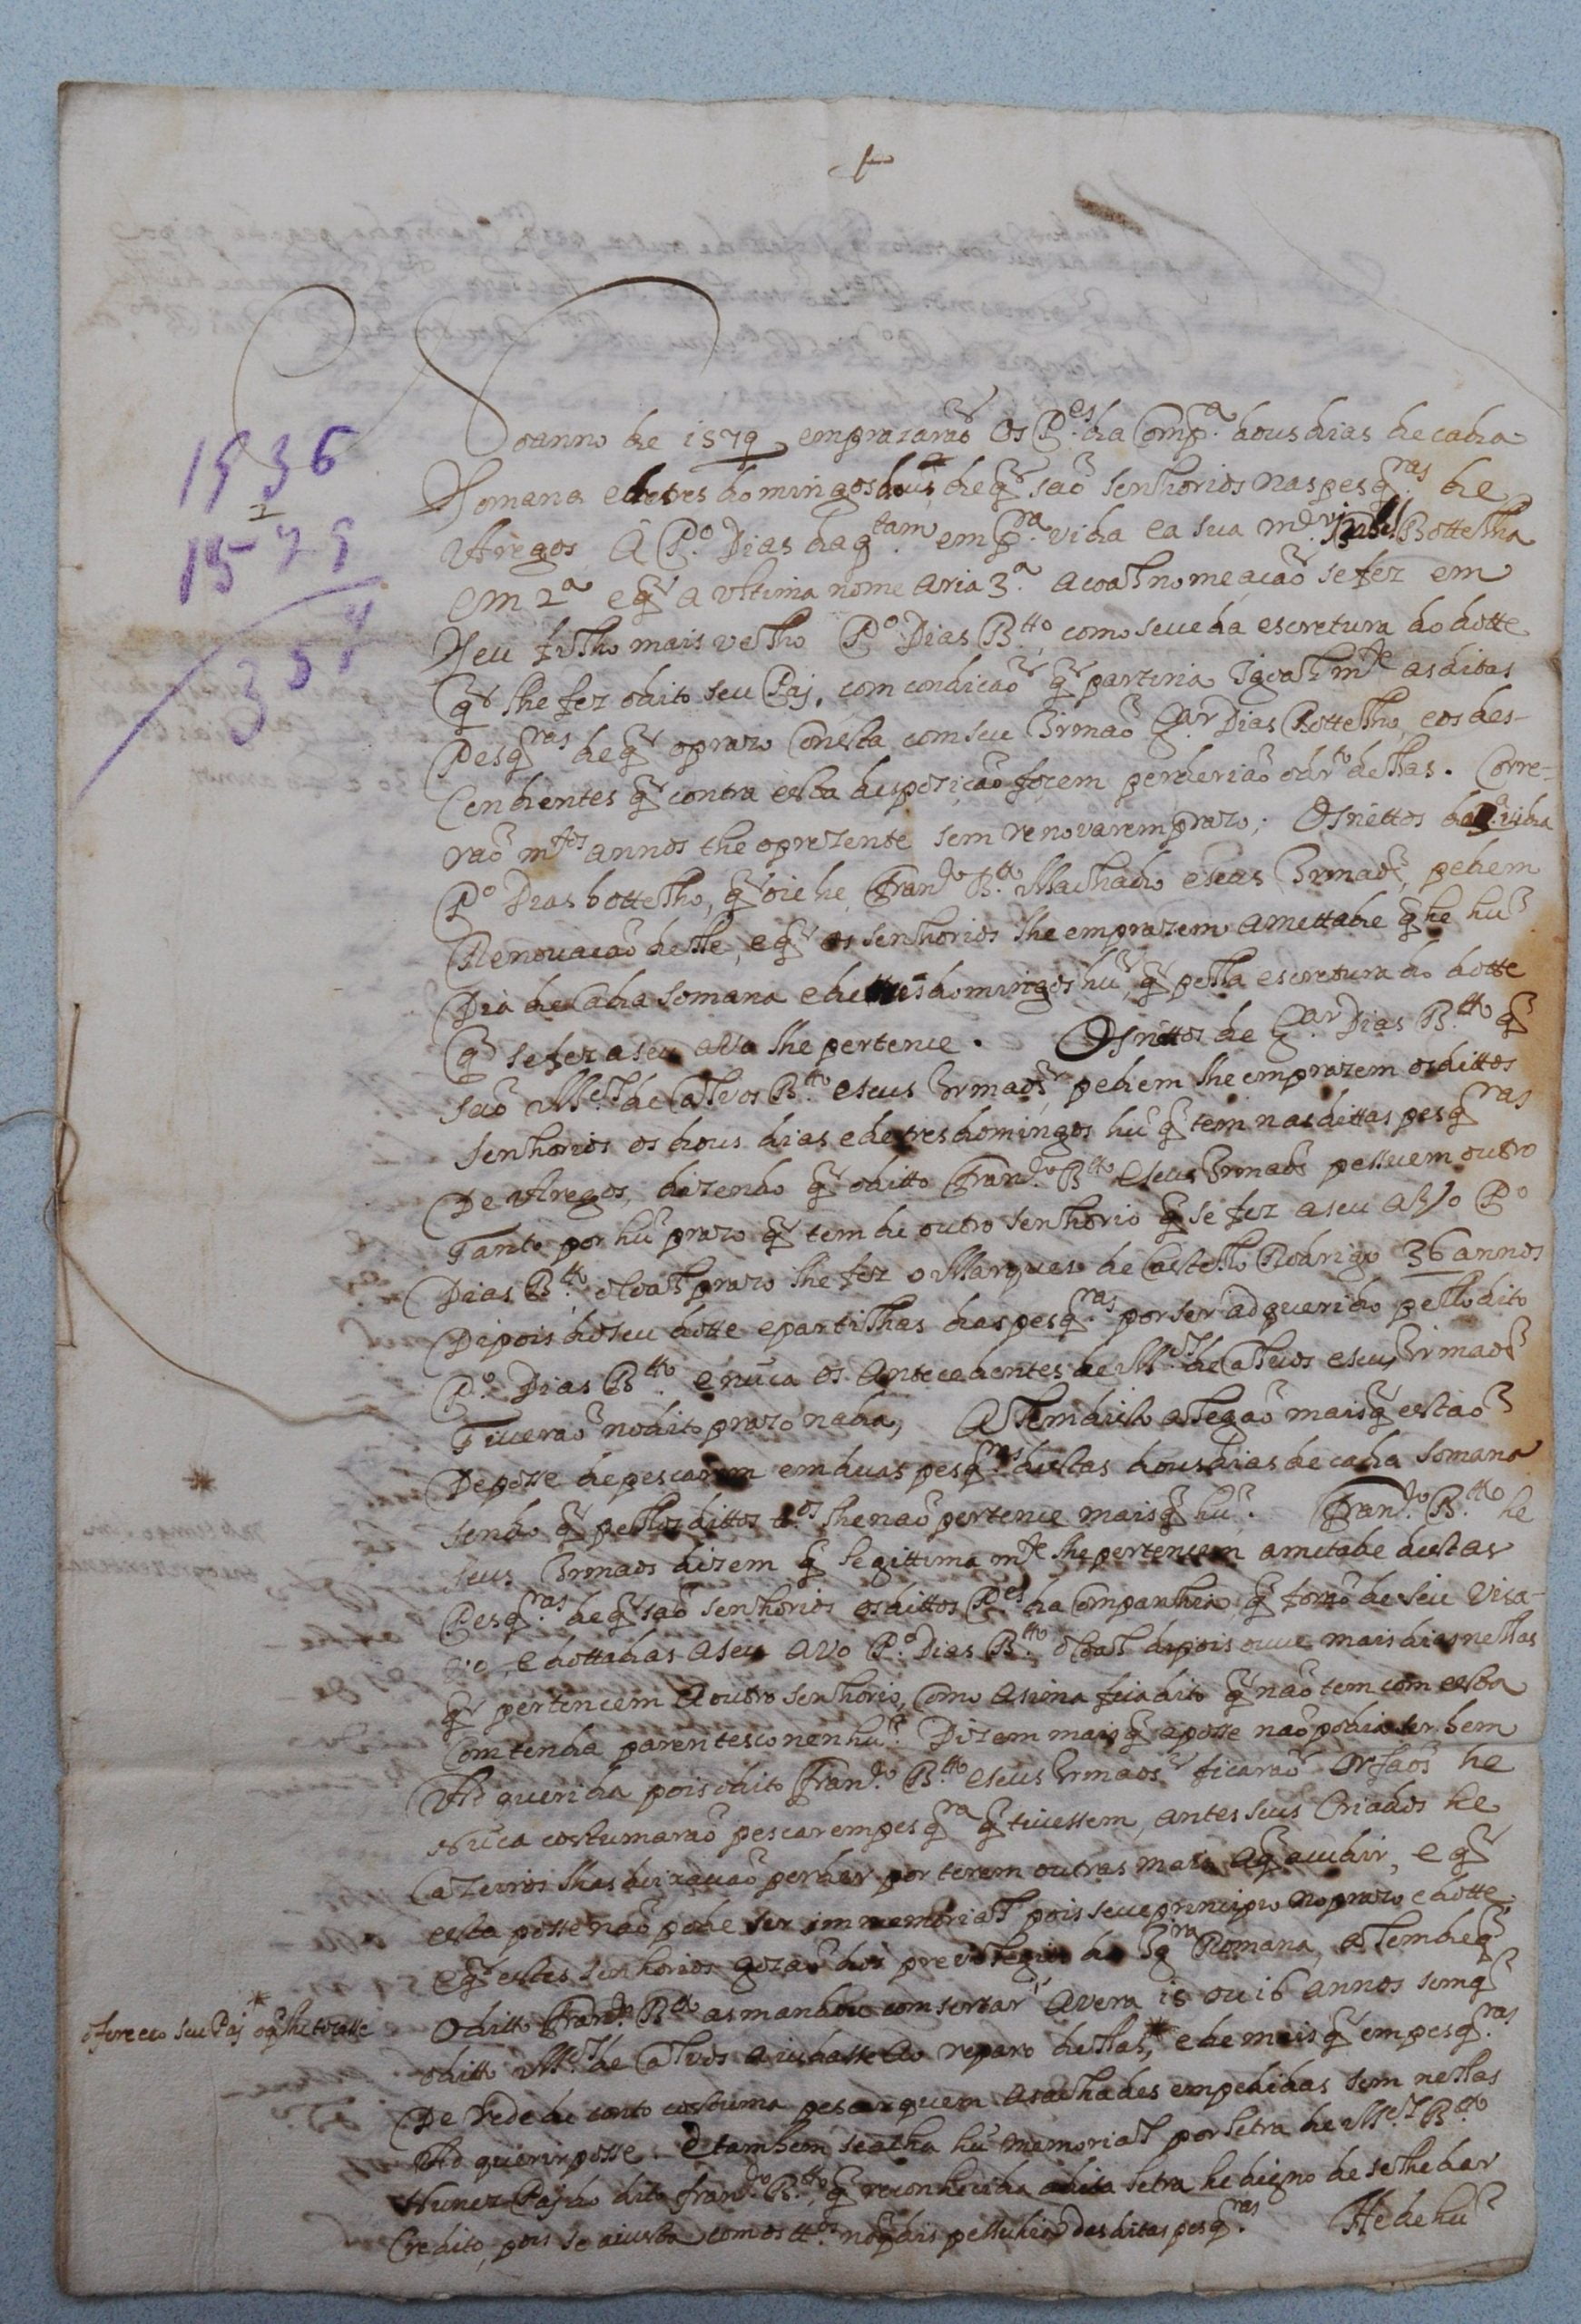 1936
1579
357
No anno de 1579 emprazaraõ Os P.es da Comp.a dous dias de cada
Somana e de tres domingos dous, de q̃ saõ senhorios nas pesq.ras de
Aregos A P.o Dias da q.tam em p.ra vida e a sua m.er Bottelha
em 2.a e q̃ a ultima nomearia 3.a a coal nomeacaõ se fez em
Seu filho mais velho P.o Dias B.tto, como se ve da escretura do dotte
q̃ lhe fez o dito seu Paj, com condicaõ q̃ partiria Igoalm.te as ditas
Pesq.ras de q̃ o prazo Consta com seu Irmaõ G.ar Dias Bottelho, e os des-
Cendentes q̃ contra esta despoziçaõ fosem perderiaõ o dir.to dellas. Corre-
raõ m.tos annos the o prezente sem renovarem prazo; Os nettos da 3.a vida
P.o Dias bottelho, q̃ oie he Fran.do B.tto Machado e seus Irmaõs, pedem
Renovacaõ delle, e q̃ os senhorios lhe emprazem a mettade q̃ he hũ
Dia de Cada Somana e de tres domingos hũ, q̃ pella escretura do dotte
q̃ se fez a seu avo lhe pertence. Os nettos de G.ar Dias B.tto q̃
saõ M.el de Calvos B.tto e seus Irmaõs, pedem lhe emprazem os dittos
senhorios os dous dias e de tres domingos hũ q̃ tem nas dittas pesq.ras
De Aregos, dizendo q̃ o ditto Fran.do B.tto e seus Irmaõs pessuem outro
Tanto por hũ prazo q̃ tem de outro senhorio q̃ se fez a seu avo P.o
Dias B.tto, o coal prazo lhe fez o Marques de Castello Rodrigo 36 annos
Depois do seu dotte e partilhas das pesq.ras por ser adquerido pello dito
P.o Dias B.tto e nũca os Antecedentes de M.el de Calvos e seus Irmaõs
Tiveraõ no dito prazo nada, Alem disto alegaõ mais q̃ estaõ
De posse de pescarem em duas pesq.ras destas dous dias de cada Somana
sendo q̃ pellos dittos tt.os lhe naõ pertence mais q̃ hũ. Fran.do B.tto he
seus Irmaos dizem q̃ legittima m.te lhe pertencem a metade destas
Pesq.ras de q̃ saõ senhorios os dittos P.es da Companhia q̃ foraõ de seu Visa-
vo, e dottadas a seu avo P.o Dias B.tto, o coal depois ouve mais dias nellas
q̃ pertencem a outro senhorio, Como asima fica dito q̃ naõ tem com esta
Comtenda parentesco nenhũ. Dizem mais q̃ a posse naõ podia ser bem
Ad querida pois o dito Fran.do B.tto e seus Irmaõs ficaraõ Orfaõs he
Nũca costumaraõ pescar em pesq.ra q̃ tivessem, antes seus Criados he
Cazeiros lhas deixavaõ perder por terem outras mais a q̃ acudir, e q̃
esta posse naõ pode ser immemorial pois se ve principio no prazo e dotte,
e q̃ estes senhorios gozaõ dos previlegios da Ig.ra Romana, Alem de q̃
O ditto Fran.do B.tto as mandou comsertar avera 15 ou 16 annos sem q̃
o ditto M.el de Calvos aiudasse ao reparo dellas,* e de mais q̃ em pesq.ras
* oferecco seu Paj o q̃ lhe tocasse
De rede de conto costuma pescar quem as acha des empedidas sem nellas
Ad querir posse. E tambem se acha hũ memorial por letra de M.el B.tto
Nunez Paj do dito fran.do B.tto, q̃ reconhecida a dita letra he digno de se lhe dar
Credito, pois se aiusta com os tt.os das ditas pesq.ras He de hũ